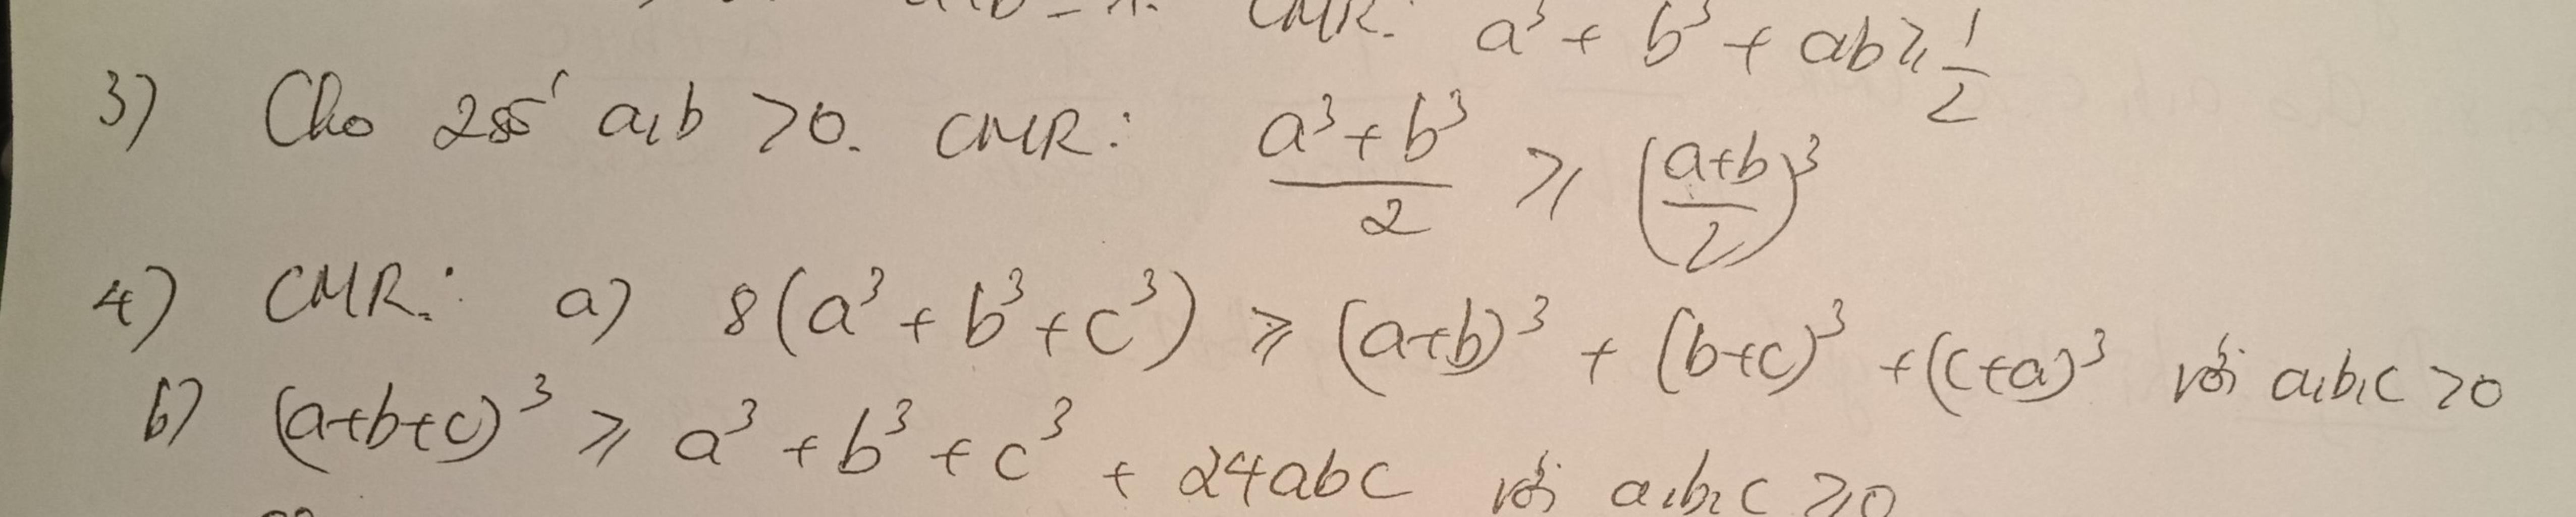 CMR: a³ + b³ + ab ≥ 1/2
3) Cho 2 số a,b >0. CMR: (a³+b³)/2 ≥ ((a+b)/2)³
4) CMR: a) 8(a³ + b³ + c³) ≥ (a+b)³ + (b+c)³ + (c+a)³ với a,b,c >0
b) (a+b+c)³ ≥ a³ + b³ + c³ + 24abc với a,b,c ≥0